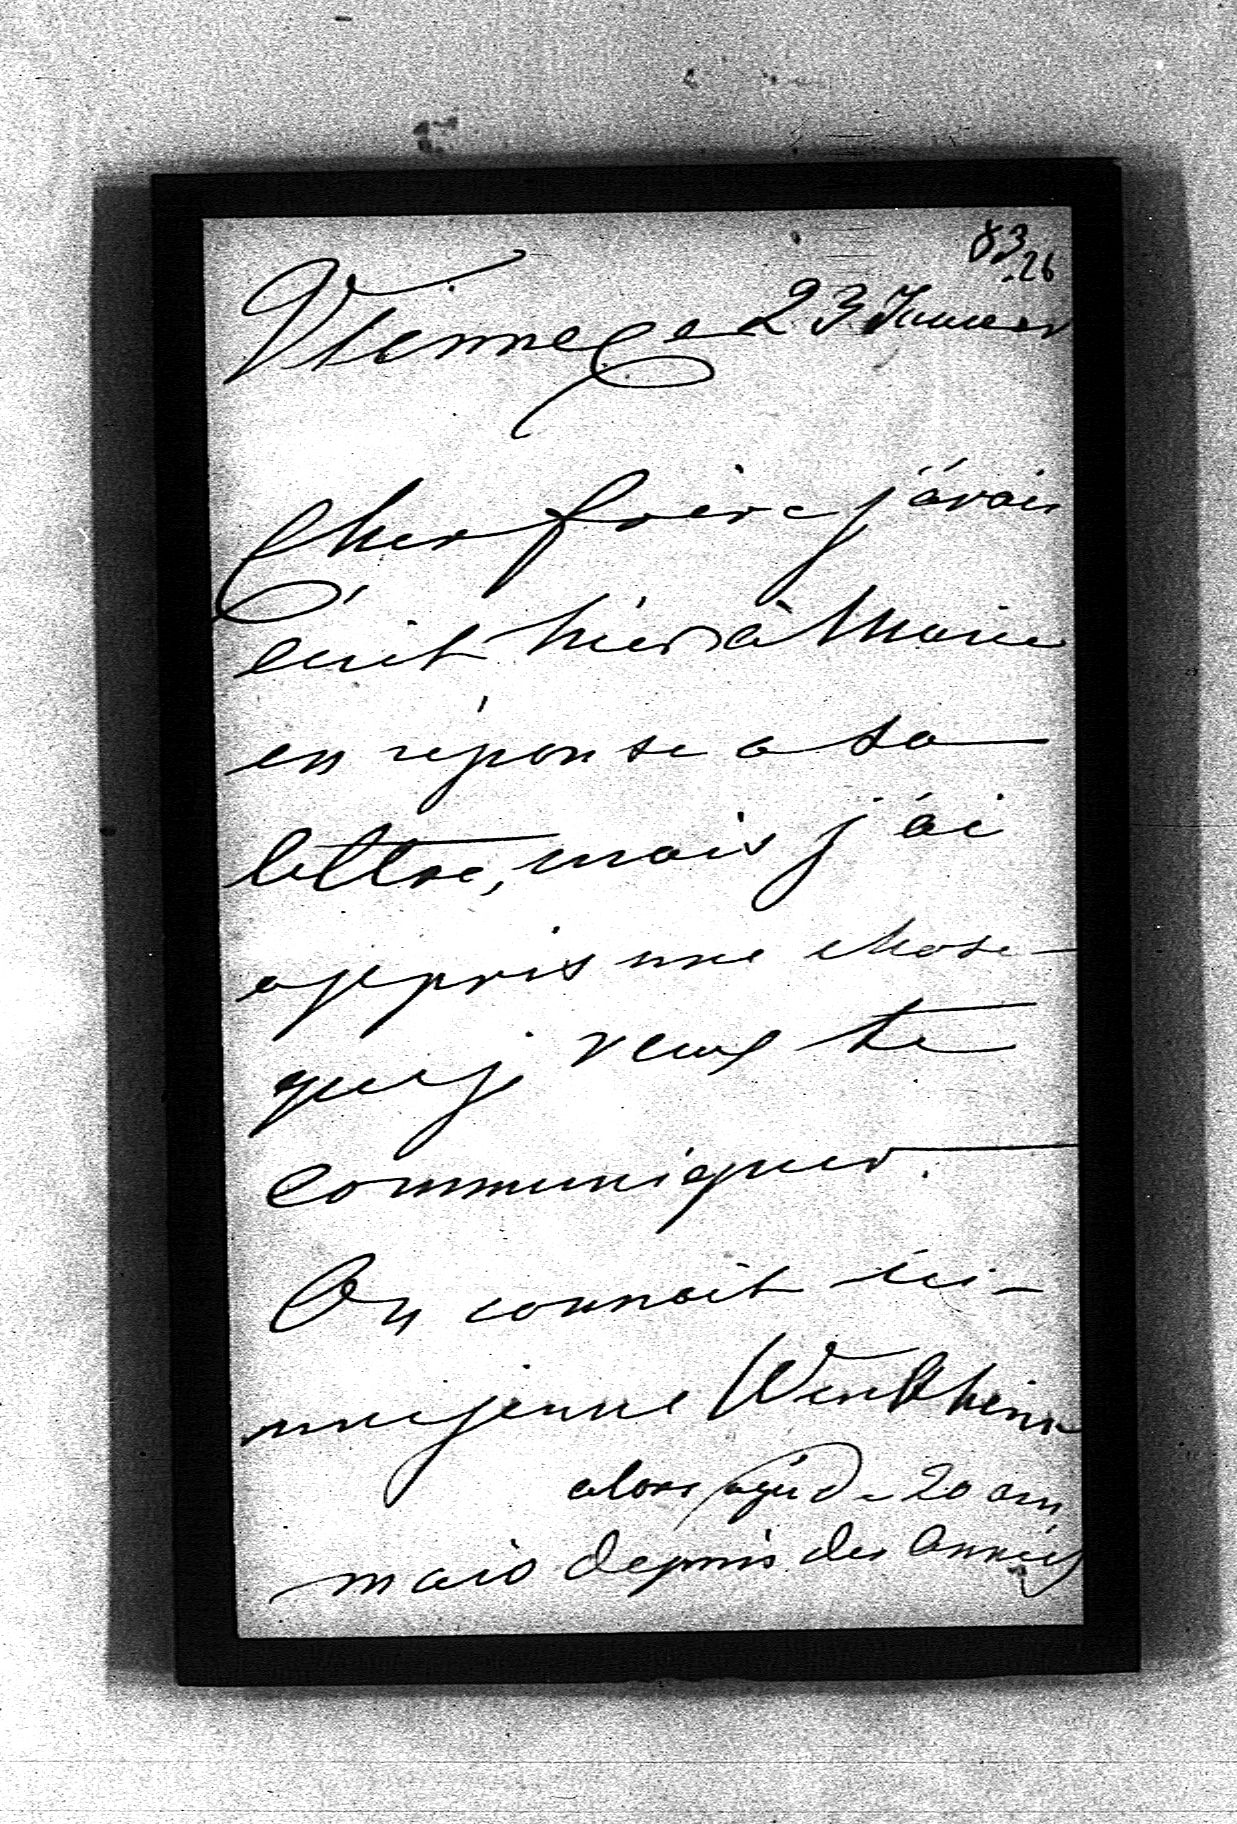 83
.26
Vienne ce 23 Janvier
Cher frère j'avais
écrit hier à Marie
en réponse a sa
lettre, mais j'ai
appris une chose
que je veux te
communiquer.
On connait ici
une jeune
alors agée de 20 ans
mais depuis des années